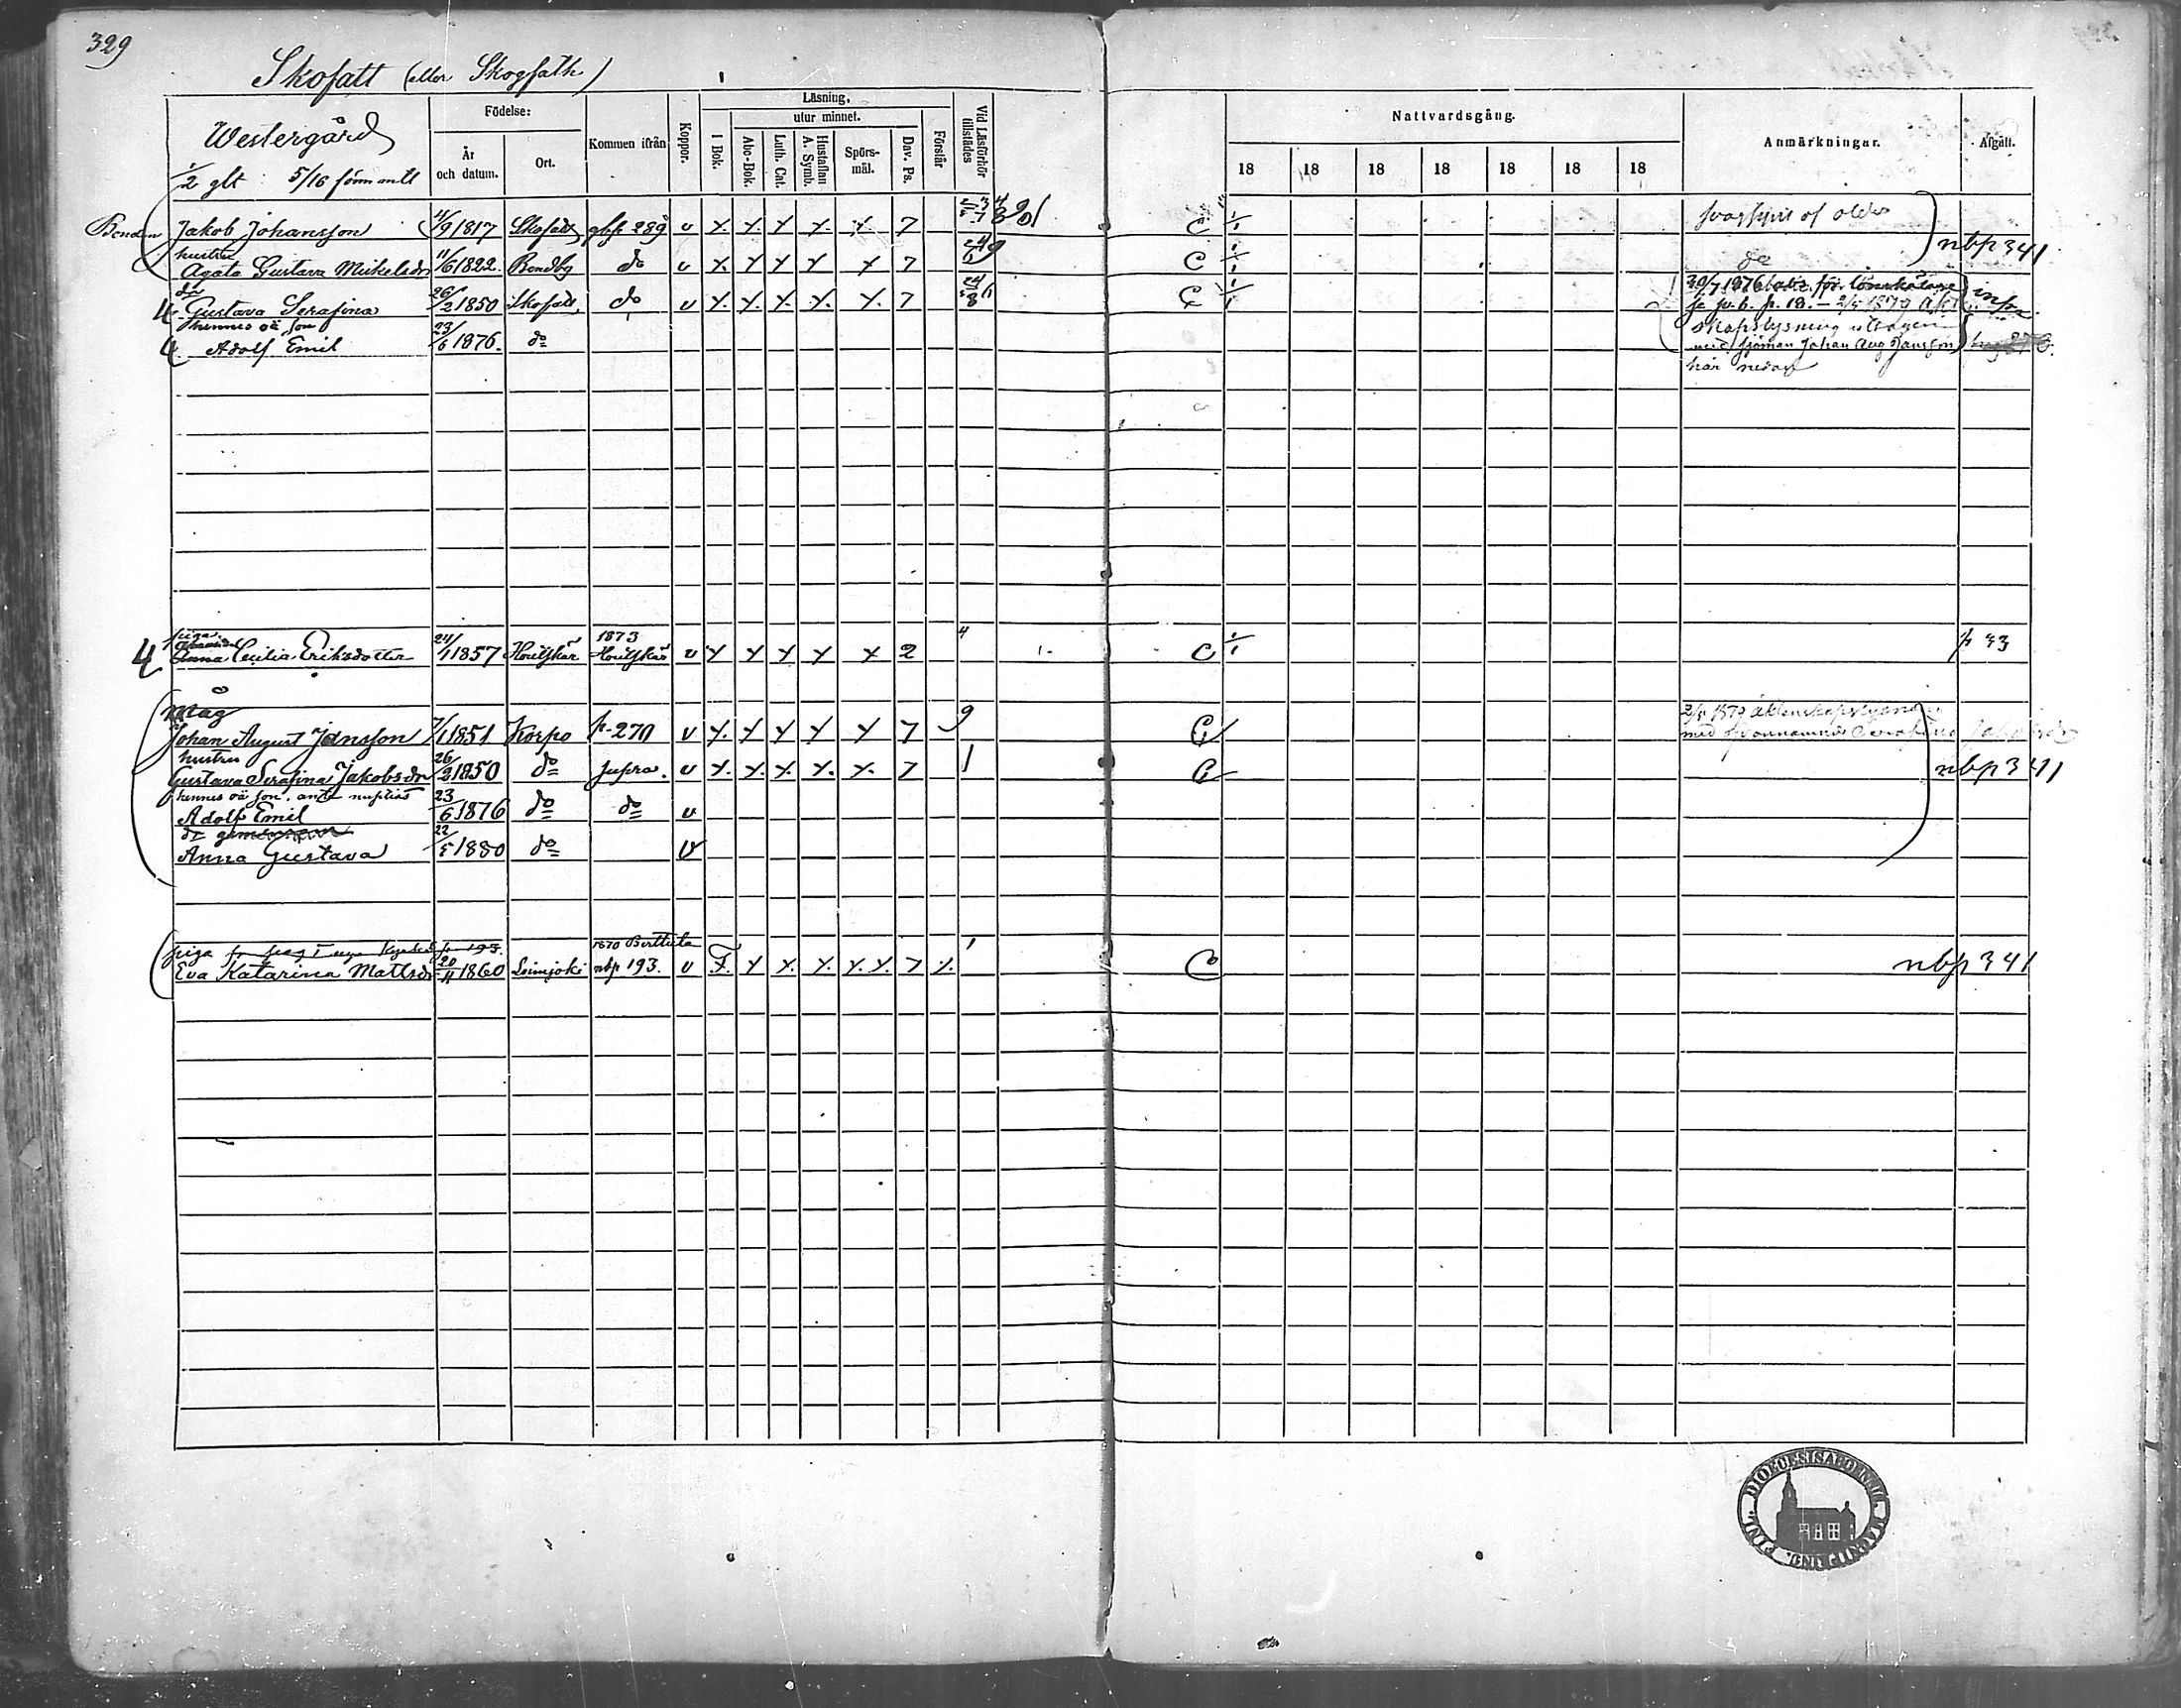 329
Skofatt (eller Skogfath)
Westergård
1/2 glt 5/16 förm antl
Födelse:
År och datum.
Ort.
Kommen ifrån
Koppor.
Läsning.
I Bok.
utur minnet.
Abc-Bok.
Luth. Cat.
Hustaflan A. Symb.
Spörs-mål.
Dav. Ps.
Förstår
Vid Läsförhör tillstädes
Nattvardsgång.
18 18 18 18 18 18 18
Anmärkningar.
Afgått.
Bonden Jakob Johansson 11/9 1817 Skofatt gbp 289 v x x x x x 7 C 1/1
hustru
Agata Gustava Mickelsdr 11/6 1822. Bondby do v x x x x x 7 C 1/1 do nbp 341
dr
4 Gustava Serafina 26/2 1850 Skofatt do v x x x x x 7 C 1/1
hennes oä son
4 Adolf Emil 23/6 1876. do
29/7 1876 för lönskaläge
se p. 18. – 2/5 1879 äkt
skapslysning uttagen
med sjöman Johan Aug Jansson
här nedan
piga
4 Anna Cecilia Eriksdotter 24/1 1857 Houtskär 1873 Houtskär v x x x x x 2 4 C 1/1 p 33
Måg
Johan August Jansson 7/1 1851 Korpo p. 270 v x x x x x 7 9 C
2/5 1879 äktenskapslysning
med ofvannämnde Serafina
hustru
Gustava Serafina Jakobsdr 26/2 1850 do supra. v x x x x x 7 1 C nbp 341
hennes oä son. ante nuptias
Adolf Emil 23/6 1876 do do v
dr
Anna Gustava 22/5 1880 do v
piga p 193.
Eva Katarina Mattsdr 20/11 1860 Loimjoki nbp 193. v x x x x x x 7 x 1 C nbp 341